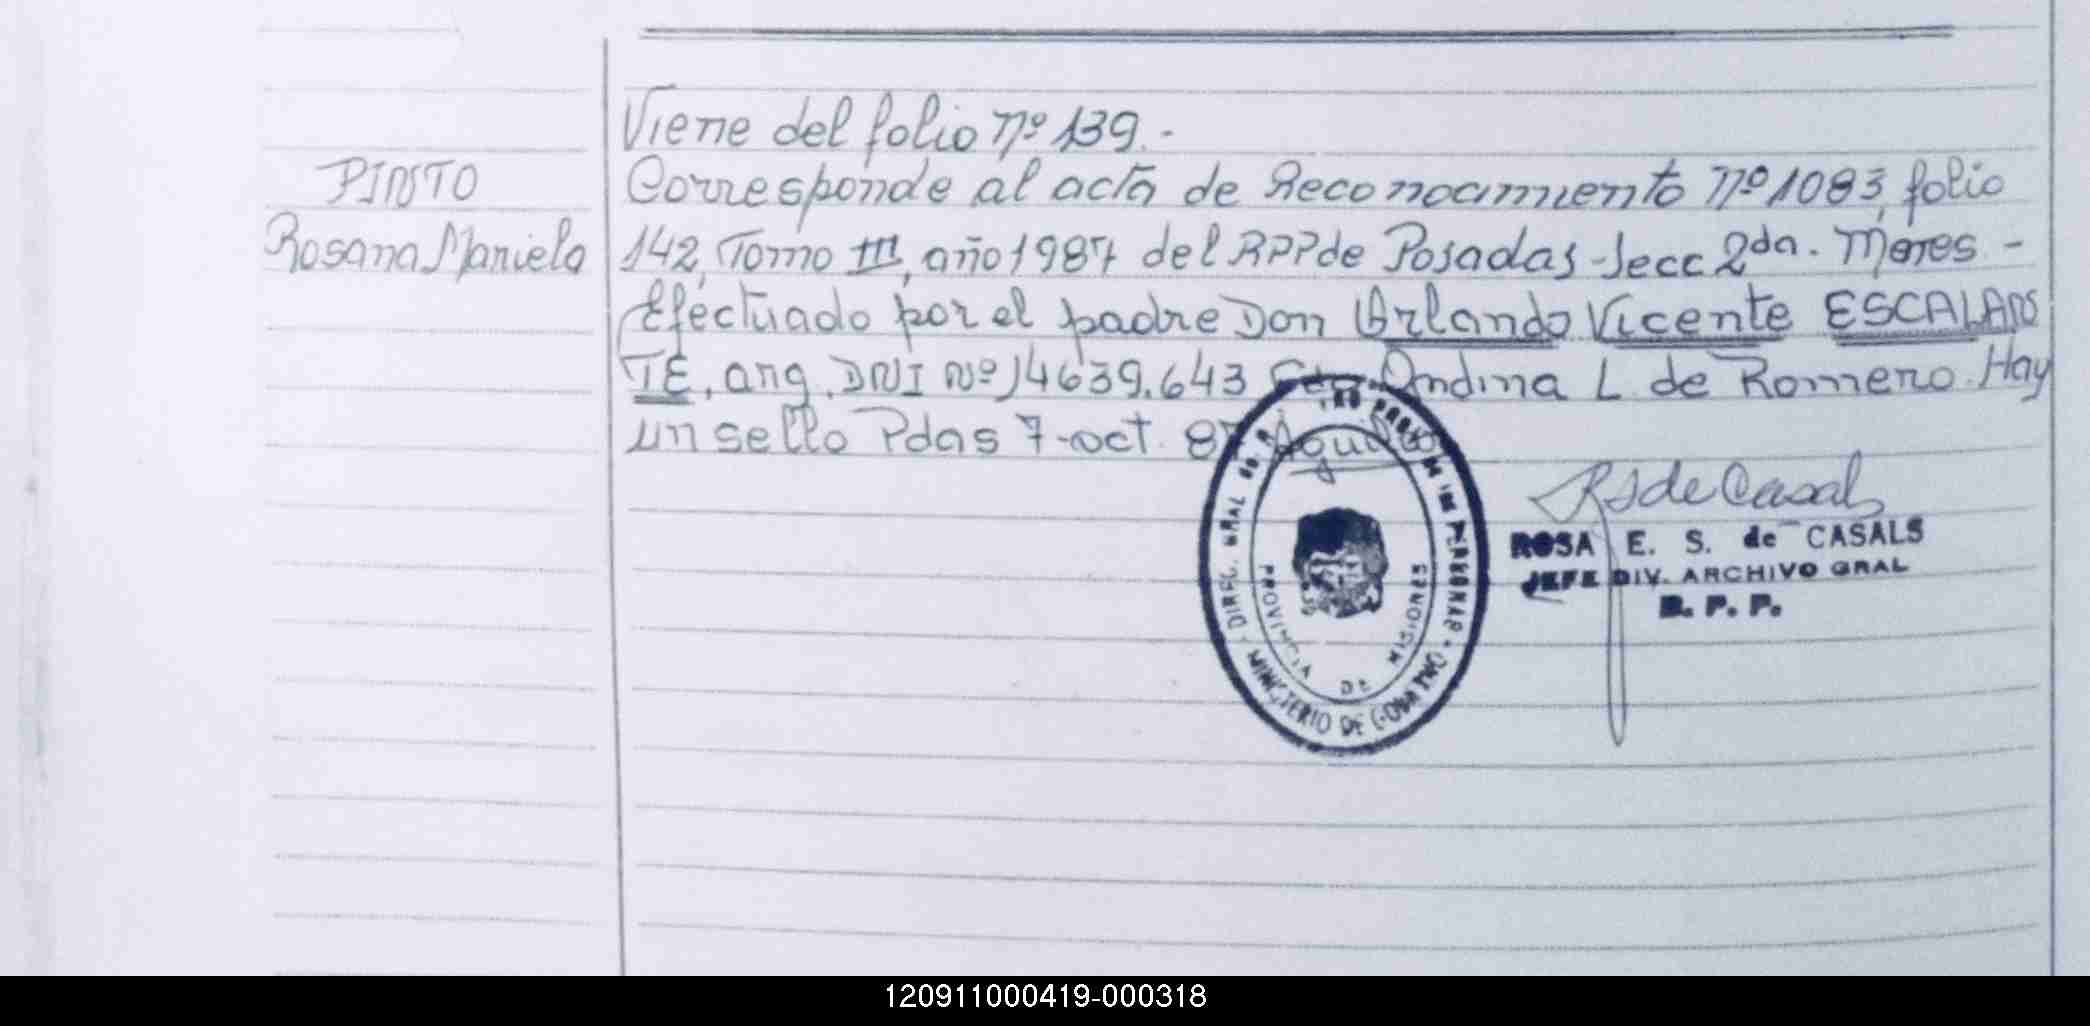 Viene del folio Nº 139.-
PINTO
Rosana Mariela
Corresponde al acta de Reconocimiento Nº 1083, folio
142, Tomo III, año 1987 del RPP de Posadas - Secc 2da. Mnes. -
Efectuado por el padre Don Orlando Vicente ESCALAN
TE, arg. DNI Nº 14639.643 Ondina L. de Romero. Hay
un sello Pdas 7-oct. 87
RS de Casals
ROSA E. S. de CASALS
JEFE DIV. ARCHIVO GRAL
R. P. P.
DIREC. GRAL
MINISTERIO DE GOBIERNO
PROVINCIA DE MISIONES
120911000419-000318